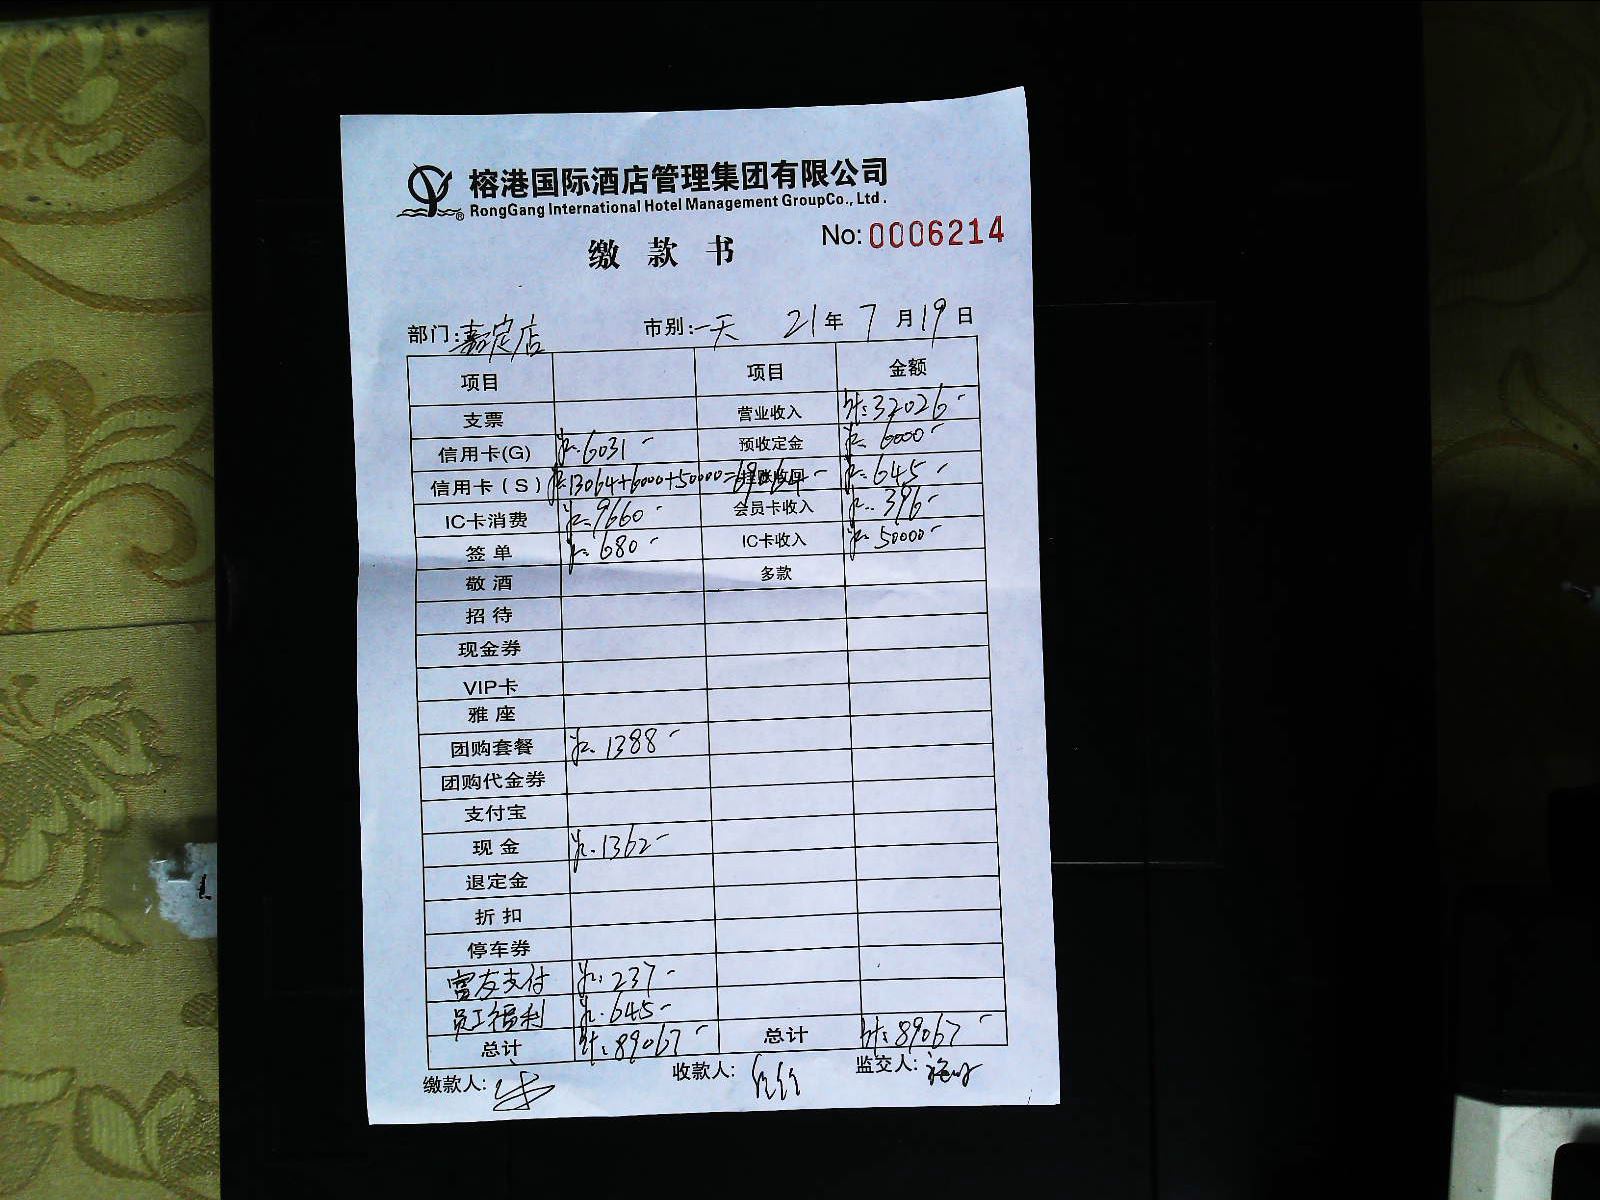 榕港国际酒店管理集团有限公司
® RongGang International Hotel Management GroupCo., Ltd.
No: 0006214
缴 款 书
部门: 嘉定店 市别: 一天 21年 7月19日
项目 项目 金额
支票 营业收入 计: 32026-
信用卡(G) 6031- 预收定金 6000-
信用卡(S) 13064+6000+50000=69064- 挂账收回 645-
IC卡消费 9660- 会员卡收入 396-
签单 680- IC卡收入 50000-
敬酒 多款
招待
现金券
VIP卡
雅座
团购套餐 1388-
团购代金券
支付宝
现金 1362-
退定金
折扣
停车券
富友支付 237-
员工福利 645-
总计 计: 89067- 总计 计: 89067-
缴款人: 收款人: 监交人: